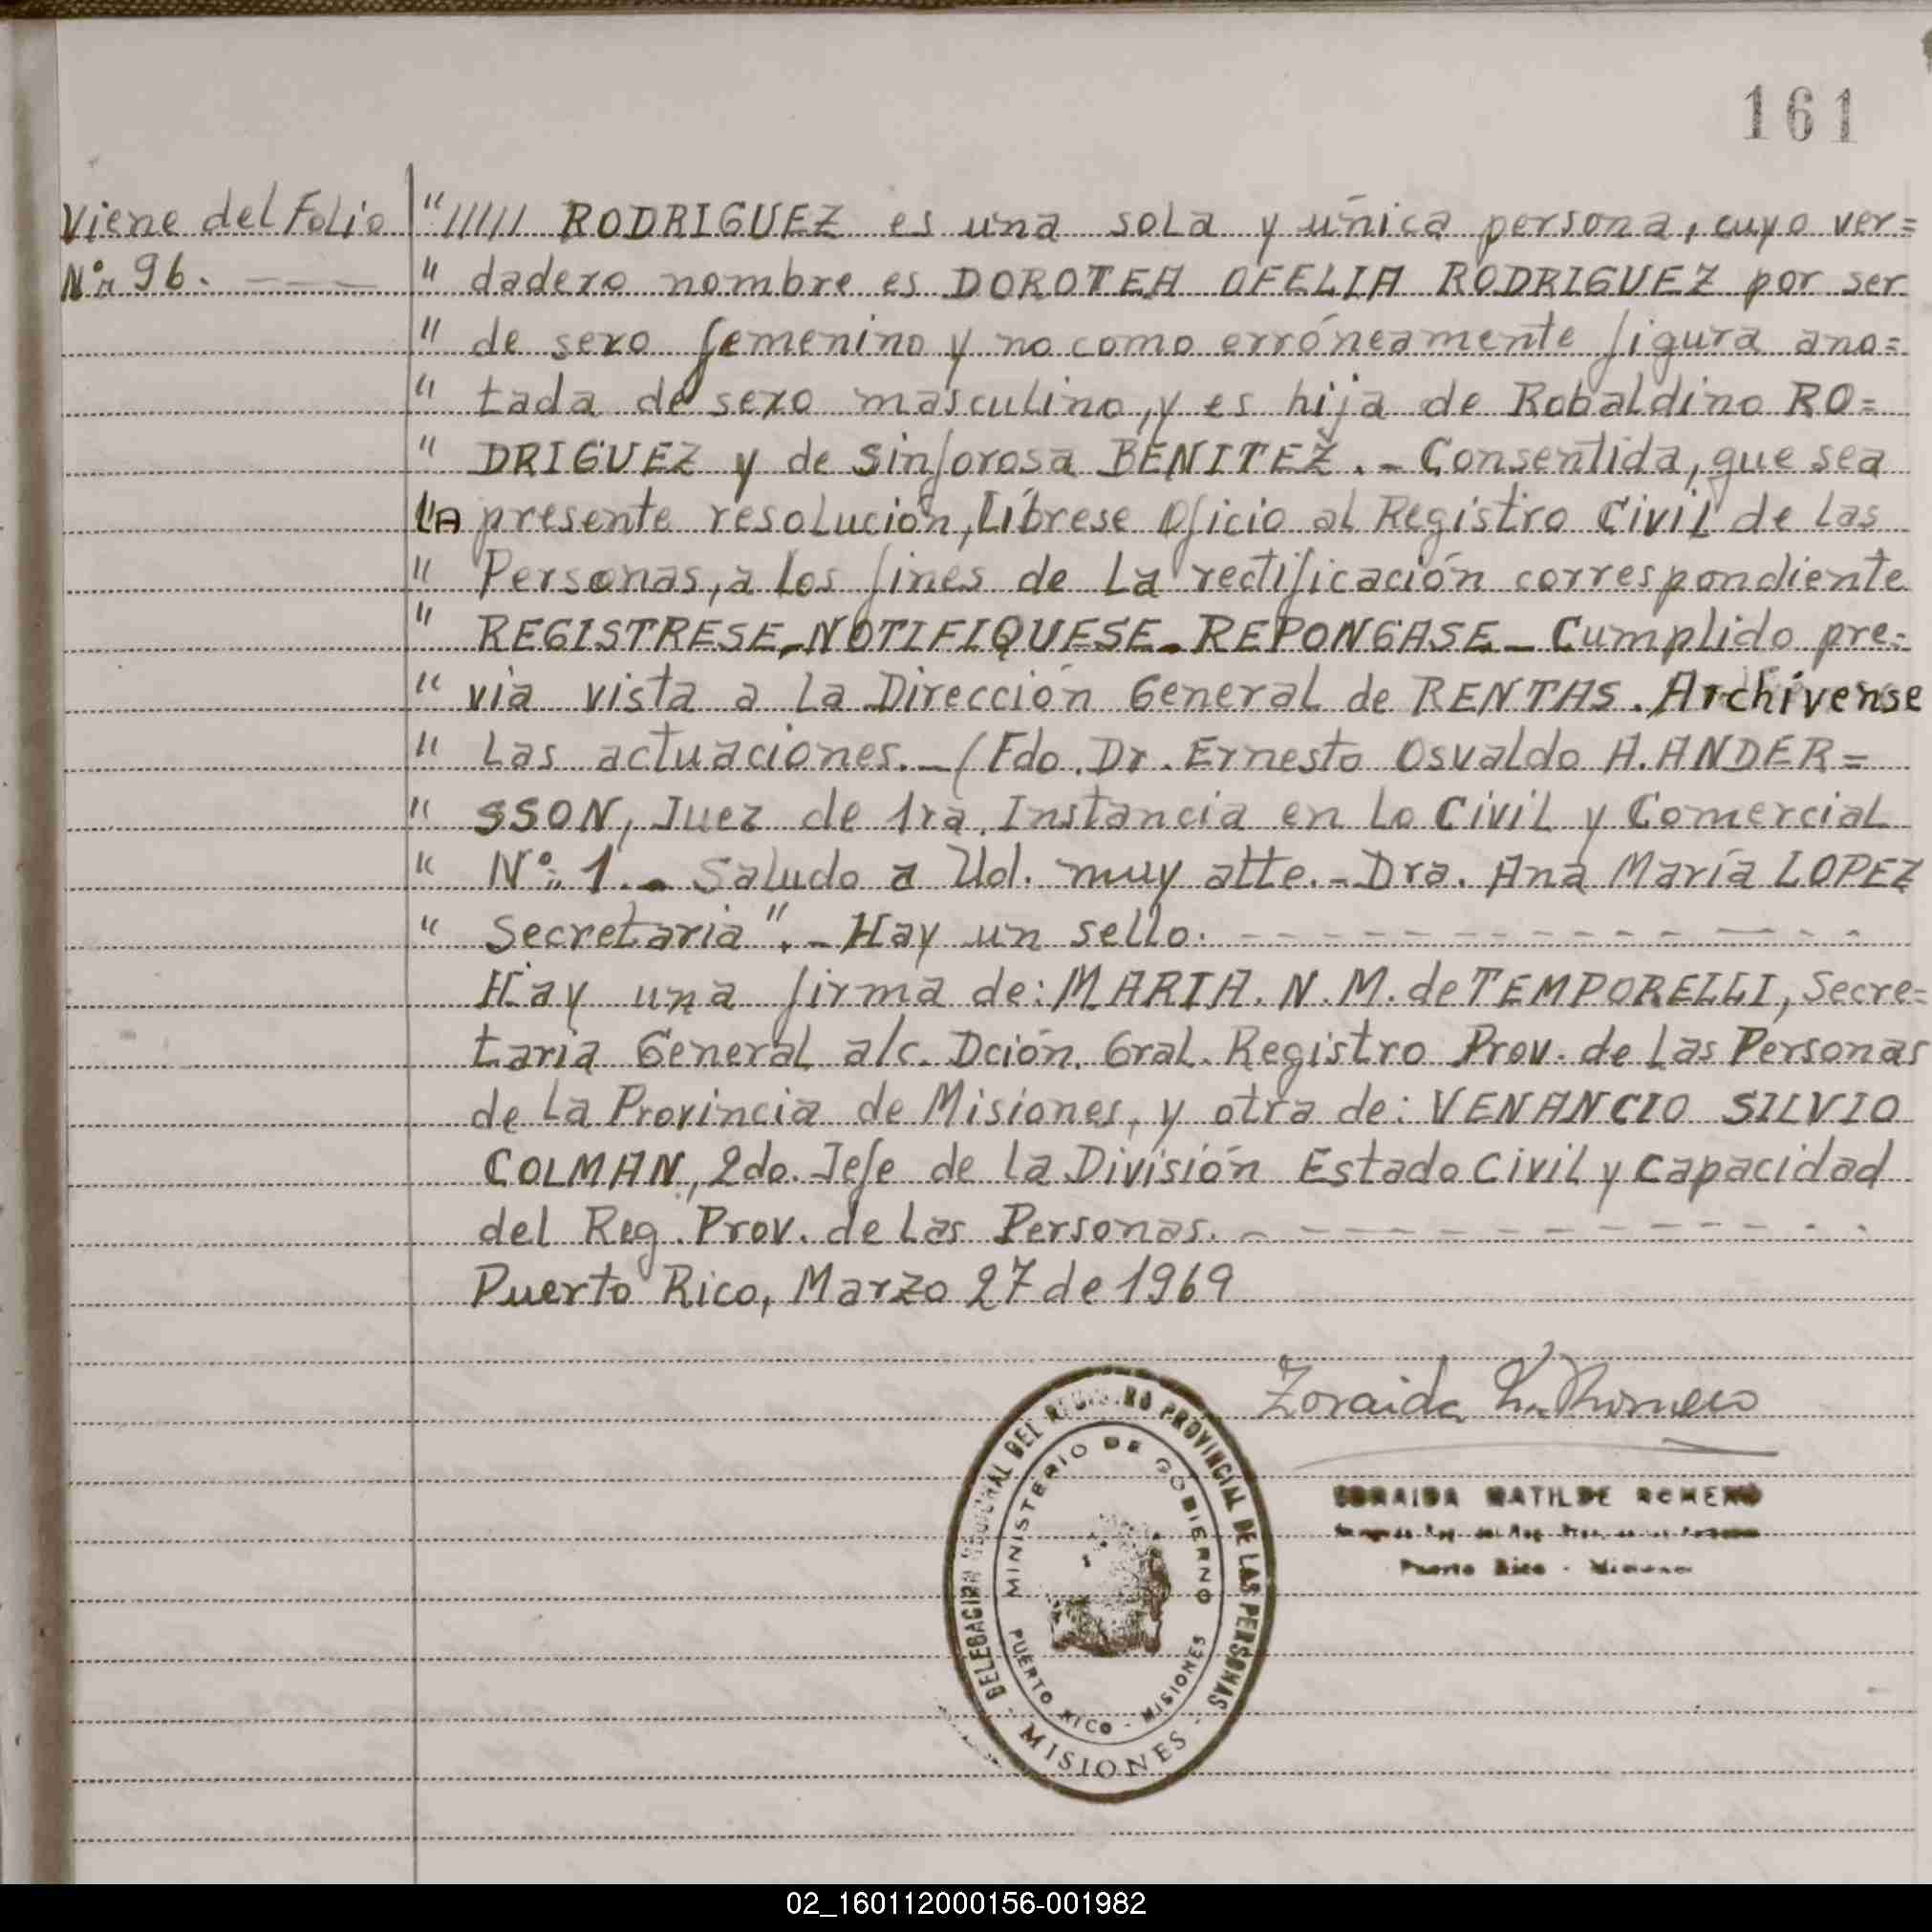 161
Viene del Folio
Nº 96. ———
"///// RODRIGUEZ es una sola y única persona, cuyo ver=
" dadero nombre es DOROTEA OFELIA RODRIGUEZ por ser
" de sexo femenino y no como erróneamente figura ano=
" tada de sexo masculino, y es hija de Robaldino RO=
" DRIGUEZ y de Sinforosa BENITEZ.- Consentida, que sea
LA presente resolución, Líbrese Oficio al Registro Civil de Las
" Personas, a los fines de La rectificación correspondiente
" REGISTRESE-NOTIFIQUESE-REPONGASE- Cumplido pre=
" via vista a La Dirección General de RENTAS. Archívense
" Las actuaciones.-(Fdo. Dr. Ernesto Osvaldo A. ANDER=
" SSON, Juez de 1ra. Instancia en Lo Civil y Comercial
" Nº 1.- Saludo a Ud. muy atte.- Dra. Ana María LOPEZ
" Secretaria".- Hay un sello. - - - - - - - - - - - -
Hay una firma de: MARIA. N. M. de TEMPORELLI, Secre=
taria General a/c. Dción. Gral. Registro Prov. de Las Personas
de La Provincia de Misiones, y otra de: VENANCIO SILVIO
COLMAN, 2do. Jefe de La División Estado Civil y Capacidad
del Reg. Prov. de Las Personas. - - - - - - - - - - - -
Puerto Rico, Marzo 27 de 1969
Zoraida M. Romero
ZORAIDA MATILDE ROMERO
Puerto Rico - Misiones
DELEGACION DEL REGISTRO PROVINCIAL DE LAS PERSONAS
MINISTERIO DE GOBIERNO
PUERTO RICO - MISIONES
- MISIONES -
02_160112000156-001982